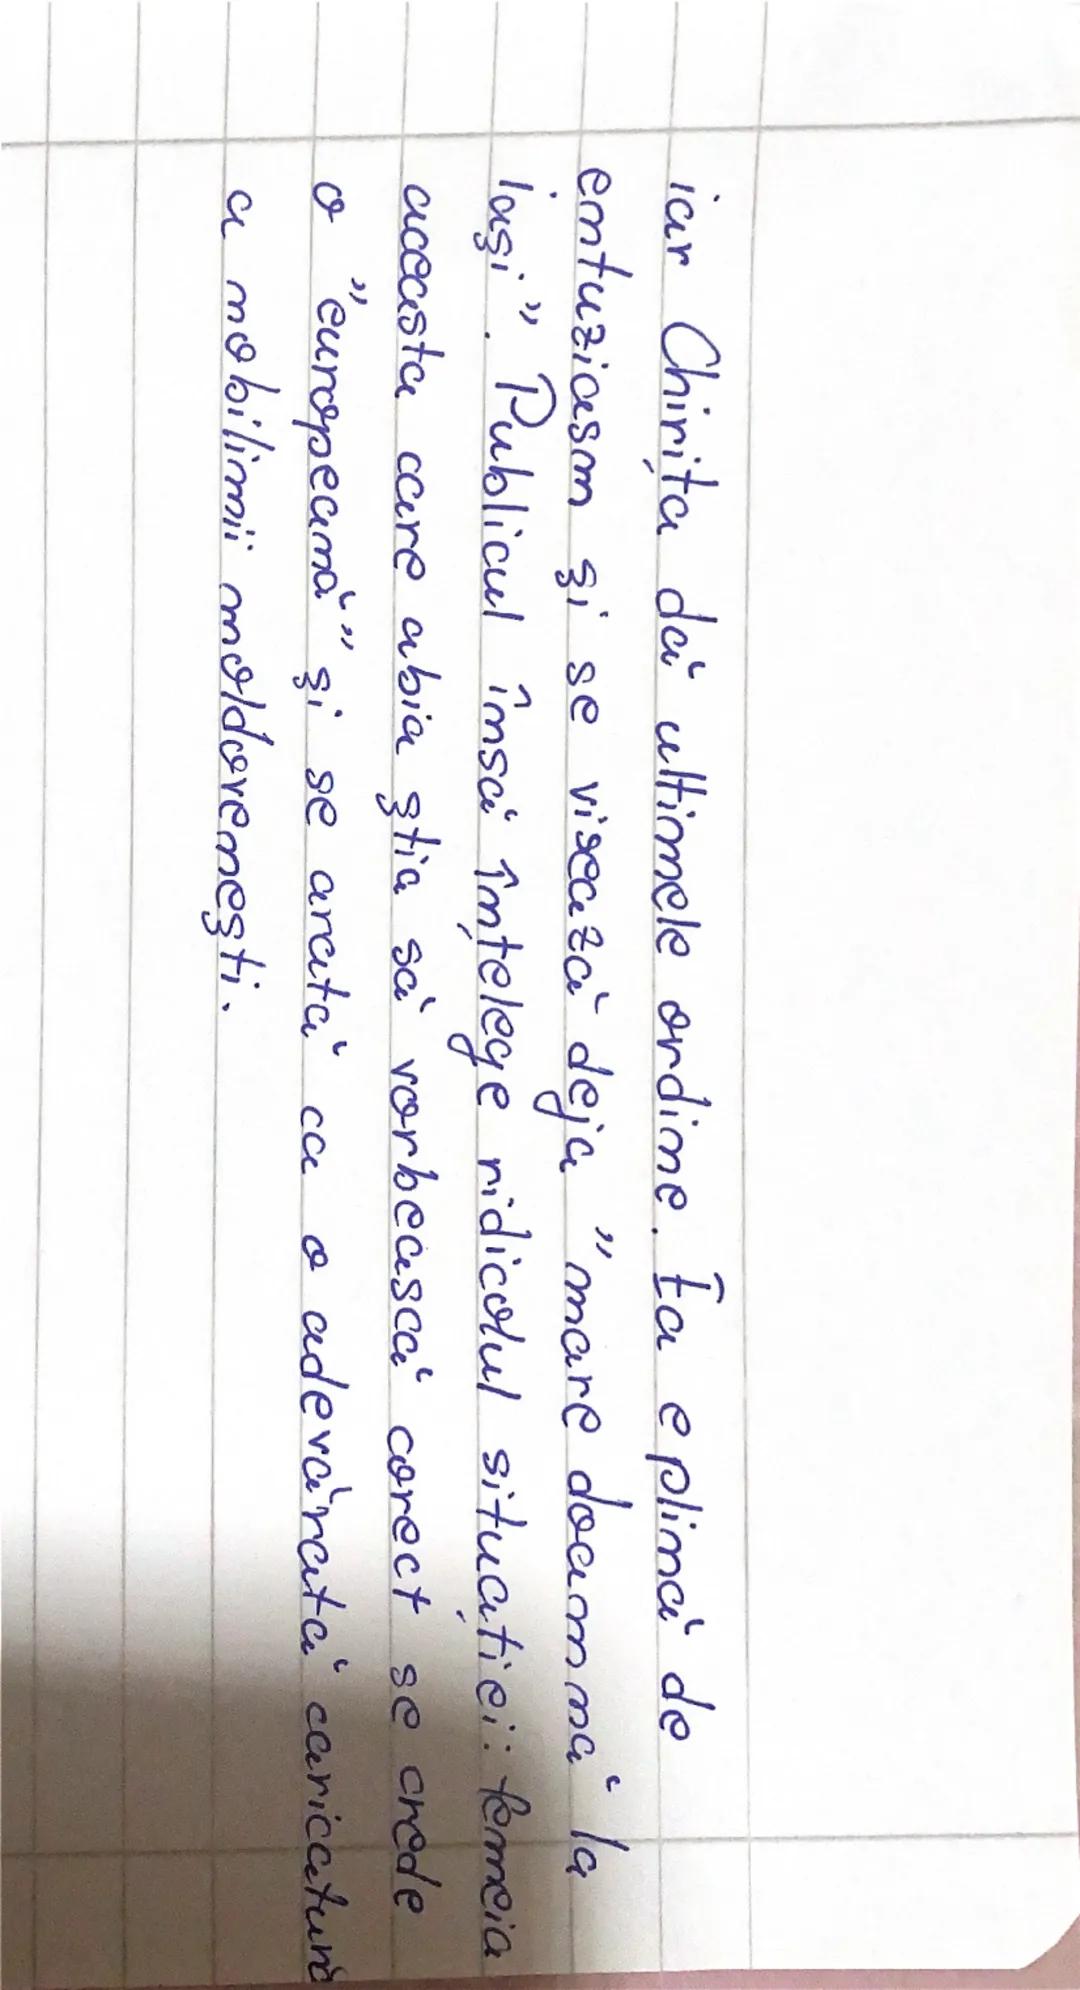 iar Chirița dă ultimele ordine. Ea e plină de
entuziasm și se visează deja "mare doamnă la
Iași". Publicul însă înțelege ridicolul situației: femeia
aceasta care abia știa să vorbească corect se crede
o "europeană" și se arată ca o adevărată caricatură
a nobilimii moldovenești.